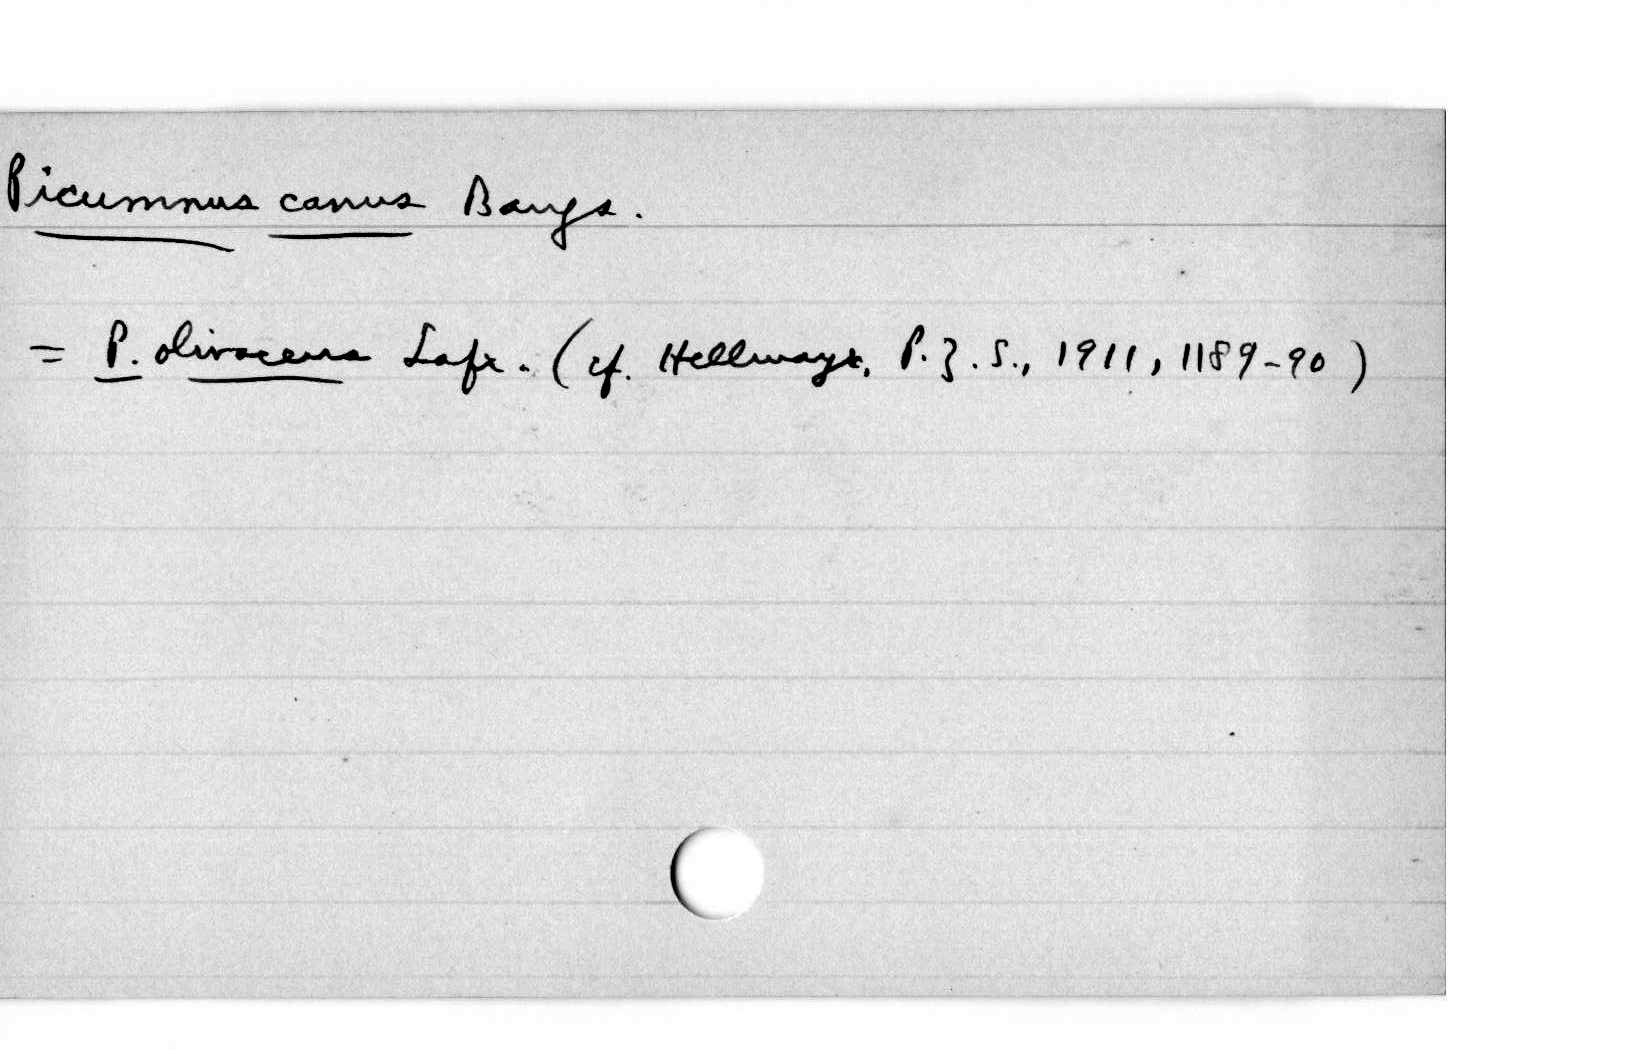 Picumnus canus Bangs.
= P. olivaceus Lafr. (cf. Hellmayr, P.Z.S., 1911, 1189-90)